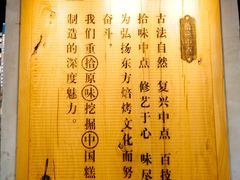 古法自然 复兴中点 百技
拾味中点 修艺于心 味尽
为弘扬东方焙烤文化而努
奋斗。
我们重拾原味挖掘中国糕
制造的深度魅力。